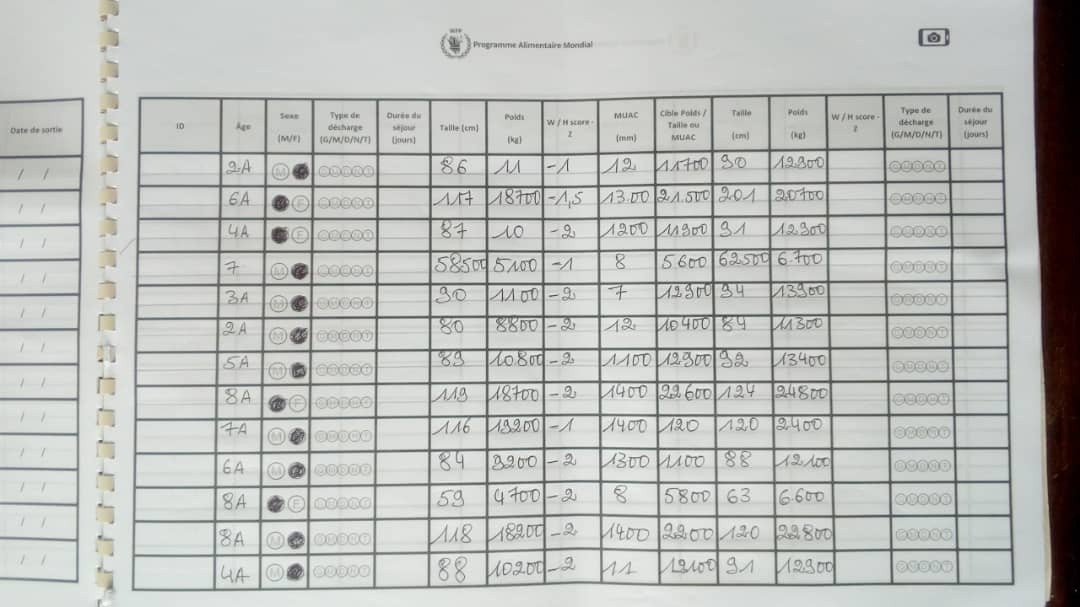 WFP
Programme Alimentaire Mondial
Date de sortie
ID Âge Sexe (M/F) Type de décharge (G/M/D/N/T) Durée du séjour (jours) Taille (cm) Poids (kg) W / H score - Z MUAC (mm) Cible Poids / Taille ou MUAC Taille (cm) Poids (kg) W / H score - Z Type de décharge (G/M/D/N/T) Durée du séjour (jours)
/ / 2A M GMDNT 86 11 -1 12 11700 90 12900 GMDNT
/ / 6A F GMDNT 117 18700 -1,5 13.00 21.500 201 20700 GMDNT
/ / 4A F GMDNT 87 10 -2 1200 11900 91 12900 GMDNT
/ / 7 M GMDNT 58500 5100 -1 8 5.600 62500 6.700 GMDNT
/ / 3A M GMDNT 90 1100 -2 7 12900 94 13900 GMDNT
/ / 2A M GMDNT 80 8800 -2 12 10400 84 11300 GMDNT
/ / 5A M GMDNT 89 10.800 -2 1100 12900 92 13400 GMDNT
/ / 8A F GMDNT 119 18700 -2 1400 22600 124 24800 GMDNT
/ / 7A M GMDNT 116 19200 -1 1400 120 120 2400 GMDNT
/ / 6A M GMDNT 84 9200 -2 1300 1100 88 12100 GMDNT
/ / 8A F GMDNT 59 4700 -2 8 5800 63 6.600 GMDNT
/ / 8A M GMDNT 118 18200 -2 1400 2200 120 22800 GMDNT
4A M GMDNT 88 10200 -2 11 12100 91 12900 GMDNT